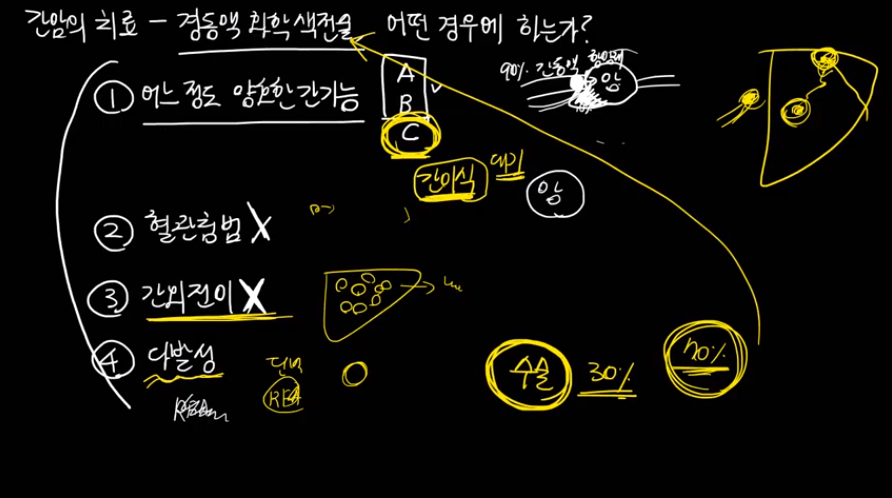 간암의 치료 – 경동맥 화학색전술 어떤 경우에 하는가?
① 어느 정도 양호한 간기능
A
B
C
90% 간동맥
암
간이식 대기
암
② 혈관침범 X
③ 간외전이 X
④ 다발성
RFA
수술 30%
70%